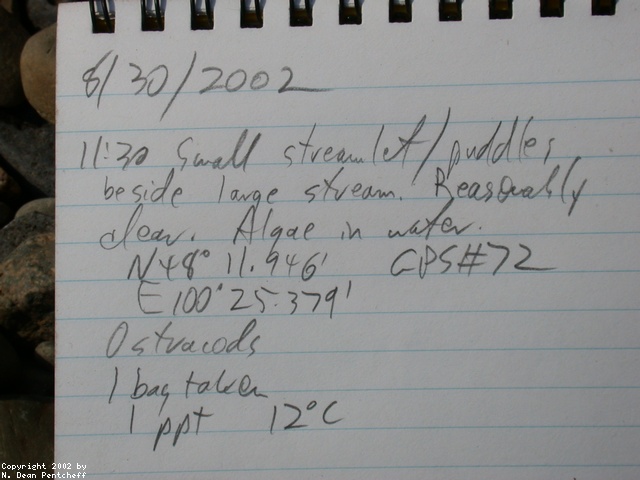 8/30/2002
11:30 Small streamlet/puddles
beside large stream. Reasonably
clear. Algae in water.
N48° 11.946' GPS#72
E100° 25.379'
Ostracods
1 bag taken
1 ppt 12°C
Copyright 2002 by
N. Dean Pentcheff